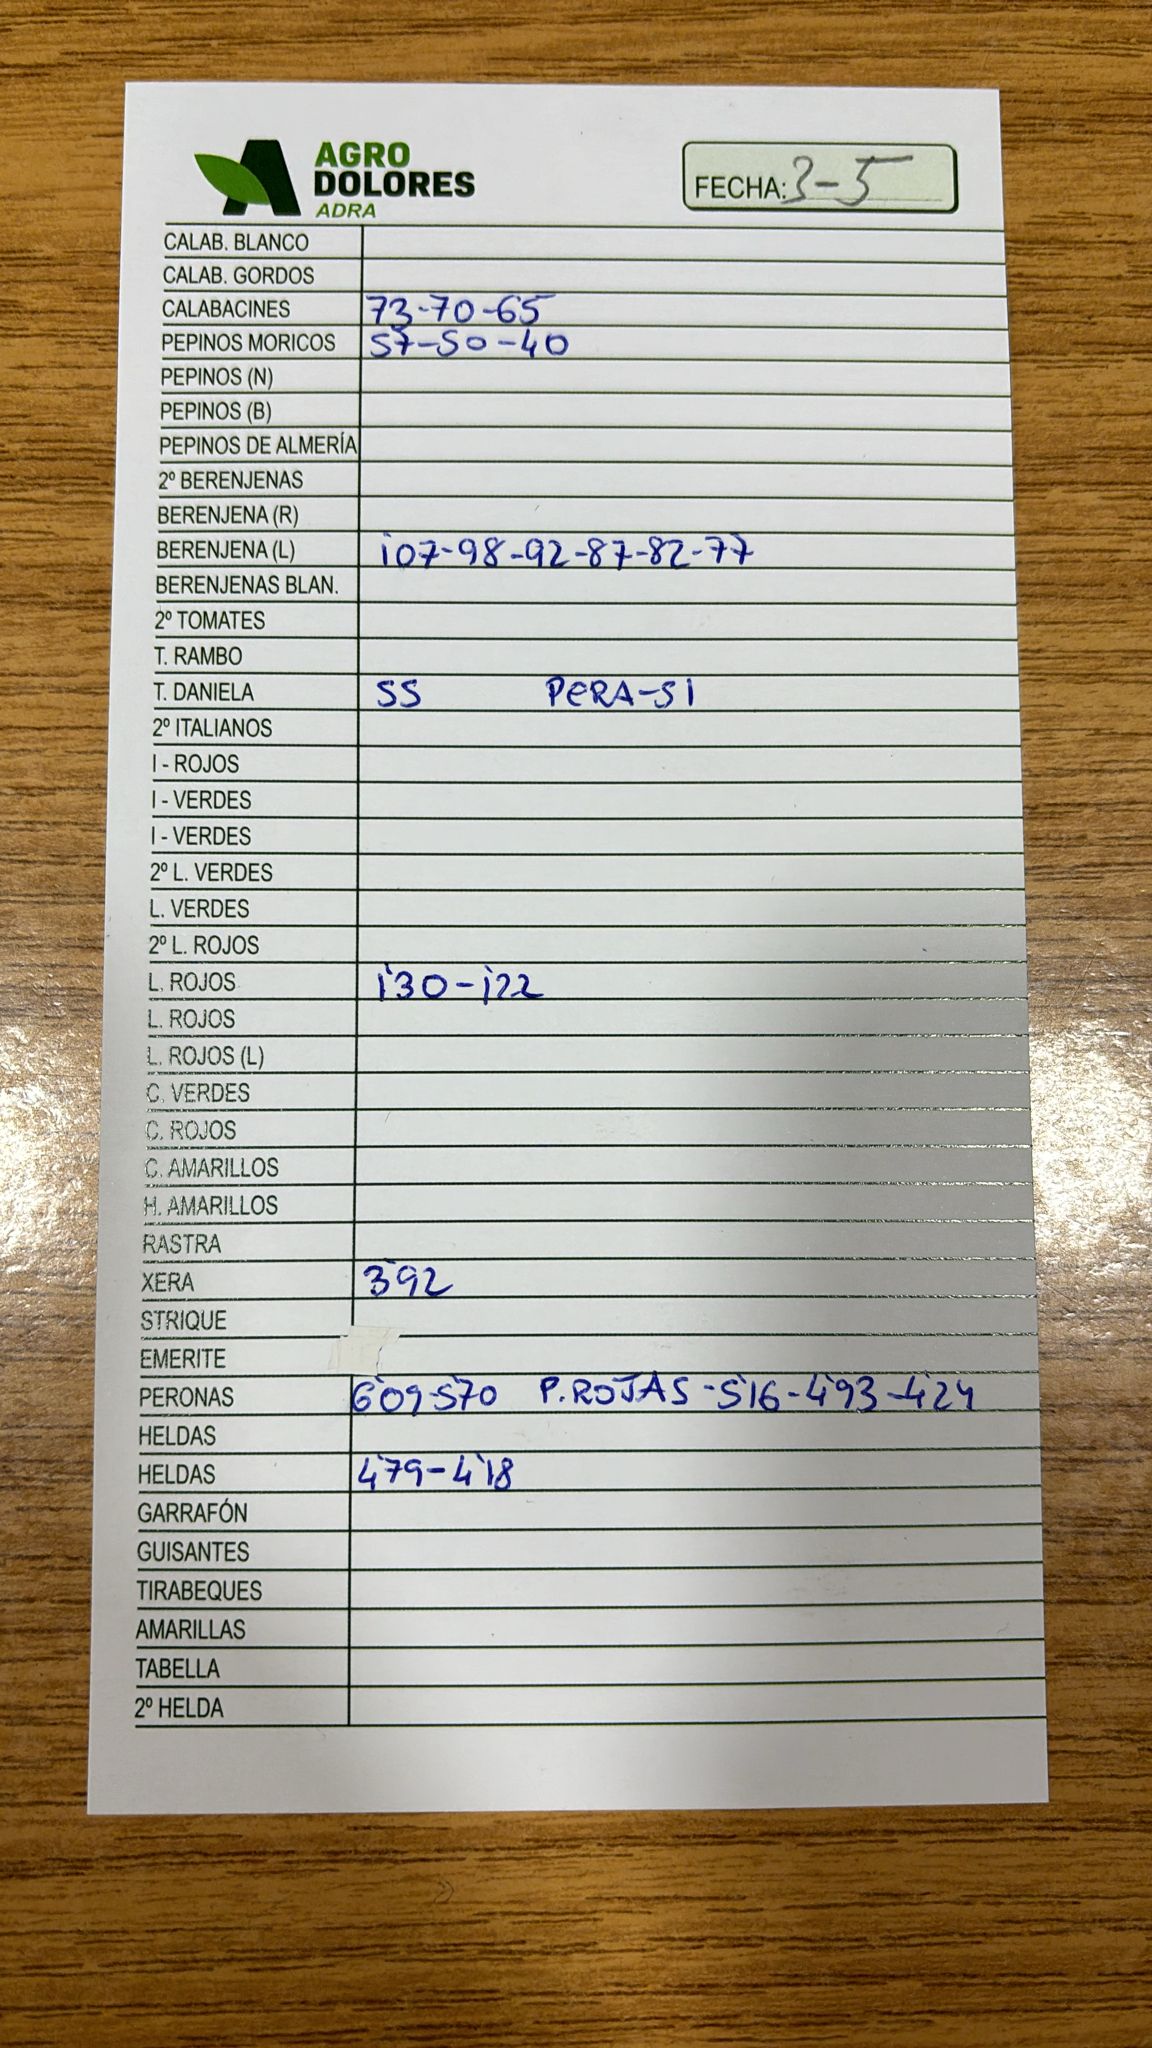 AGRO
DOLORES
ADRA
FECHA: 3-5
CALAB. BLANCO
CALAB. GORDOS
CALABACINES 73-70-65
PEPINOS MORICOS 57-50-40
PEPINOS (N)
PEPINOS (B)
PEPINOS DE ALMERÍA
2º BERENJENAS
BERENJENA (R)
BERENJENA (L) 1'07-98-92-87-82-77
BERENJENAS BLAN.
2º TOMATES
T. RAMBO
T. DANIELA 55 PERA-51
2º ITALIANOS
I - ROJOS
I - VERDES
I - VERDES
2º L. VERDES
L. VERDES
2º L. ROJOS
L. ROJOS 1'30-1'22
L. ROJOS
L. ROJOS (L)
C. VERDES
C. ROJOS
C. AMARILLOS
H. AMARILLOS
RASTRA
XERA 3'92
STRIQUE
EMERITE
PERONAS 6'09-5'70 P.ROJAS-5'16-4'93-4'24
HELDAS
HELDAS 4'79-4'18
GARRAFÓN
GUISANTES
TIRABEQUES
AMARILLAS
TABELLA
2º HELDA